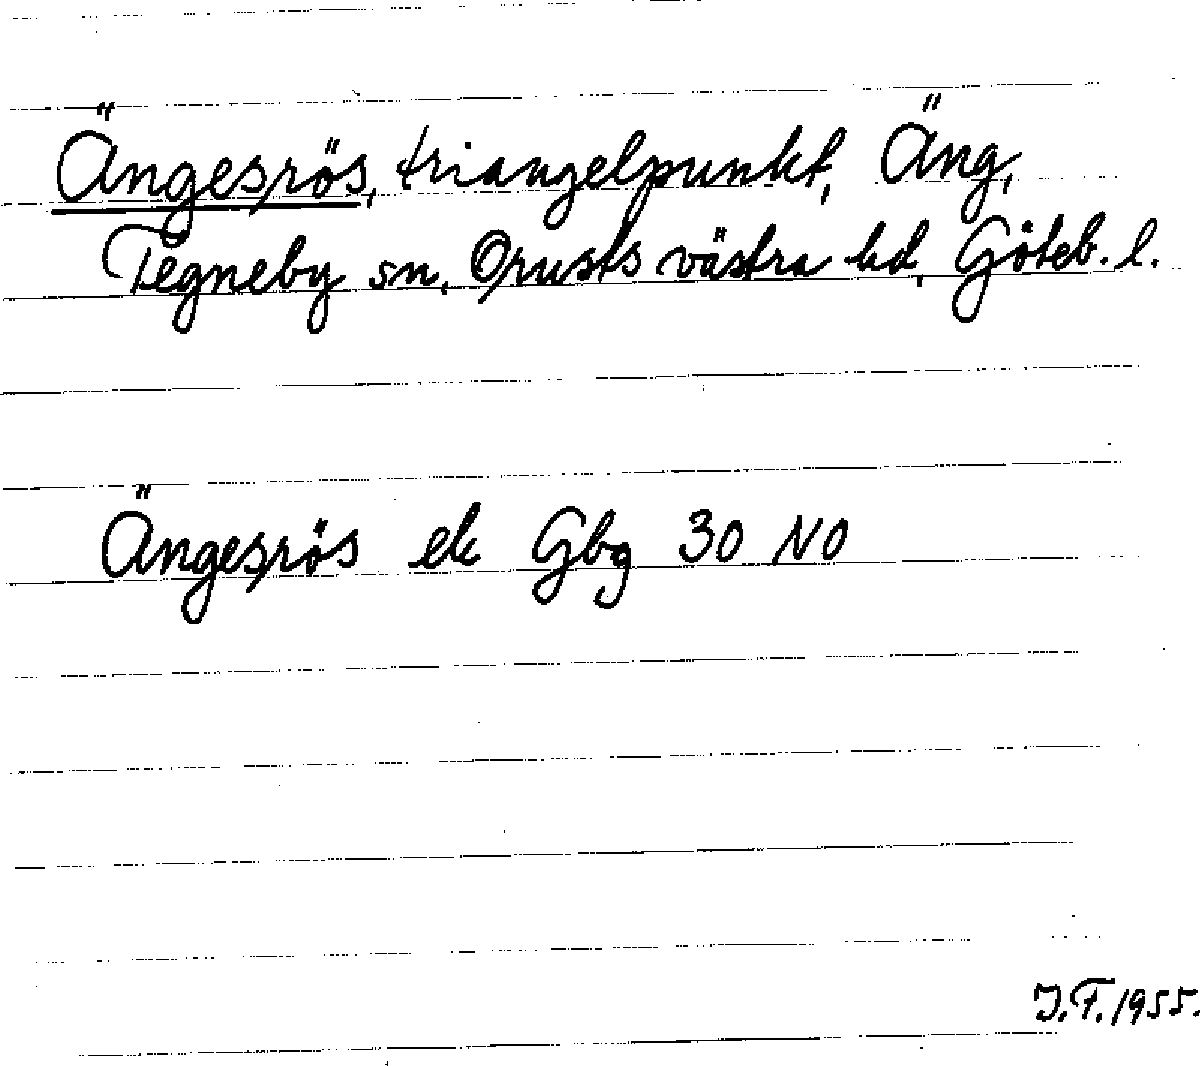 Ängesrös, triangelpunkt, Äng,
Tegneby sn, Orusts västra hd, Göteb. l.
Ängesrös ek Gbg 30 NO
J.F. 1955.